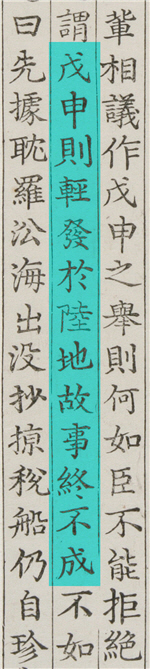 輩相議作戊申之舉則何如臣不能拒絶
謂戊申則輕發於陸地故事終不成不如
曰先據耽羅沿海出没抄掠稅船仍自珍